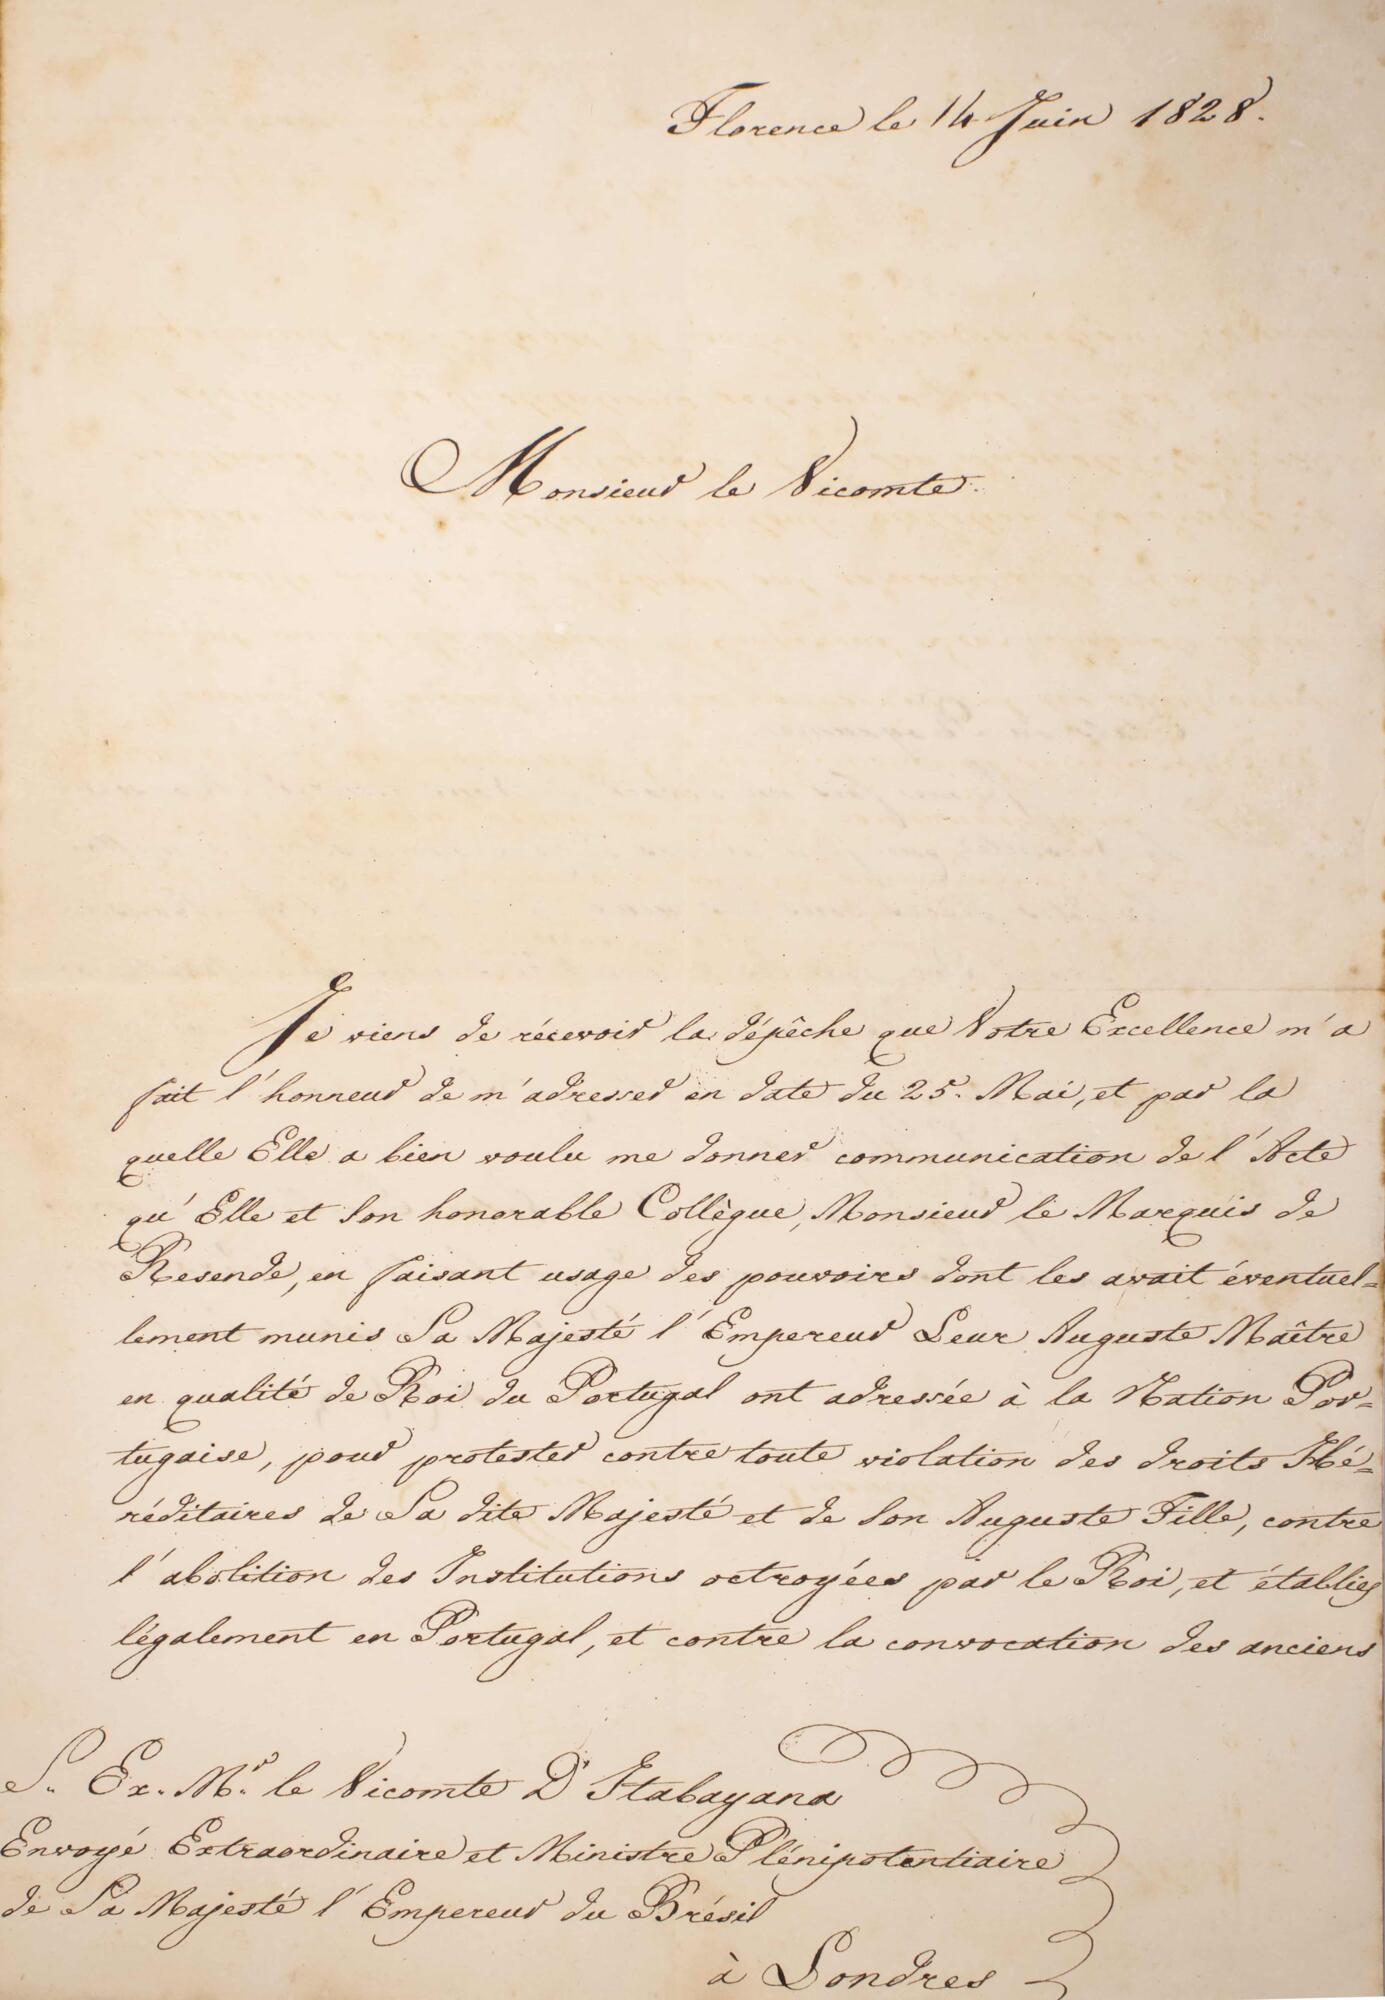 Florence le 14 Juin 1828.
Monsieur le Vicomte.
Je viens de récevoir la dépêche que Votre Excellence m'a
fait l'honneur de m'adresser en date du 25. Mai, et par la
quelle Elle a bien voulu me donner communication de l'Acte
qu'Elle et Son honorable Collègue, Monsieur le Marquis de
Resende, en faisant usage des pouvoirs dont les avait éventuel=
lement munis Sa Majesté l'Empereur Leur Auguste Maître
en qualité de Roi du Portugal ont adressée à la Nation Por=
tugaise, pour protester contre toute violation des droits Hé=
réditaires de Sa dite Majesté et de Son Auguste Fille, contre
l'abolition des Institutions octroyées par le Roi, et établies
légalement en Portugal, et contre la convocation des anciens
S. Ex. Mr. le Vicomte D'Itabayana
Envoyé Extraordinaire et Ministre Plénipotentiaire
de Sa Majesté l'Empereur du Brésil
à Londres